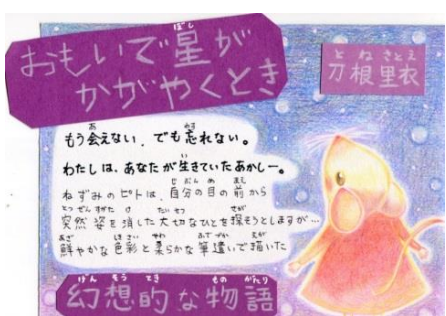 おもいで星が
かがやくとき
刀根里衣
もう会えない、でも忘れない。
わたしは、あなたが生きていたあかしー。
ねずみのピトは、自分の目の前から
突然姿を消した大切なひとを探そうとしますが…
鮮やかな色彩と柔らかな筆遣いで描いた
幻想的な物語